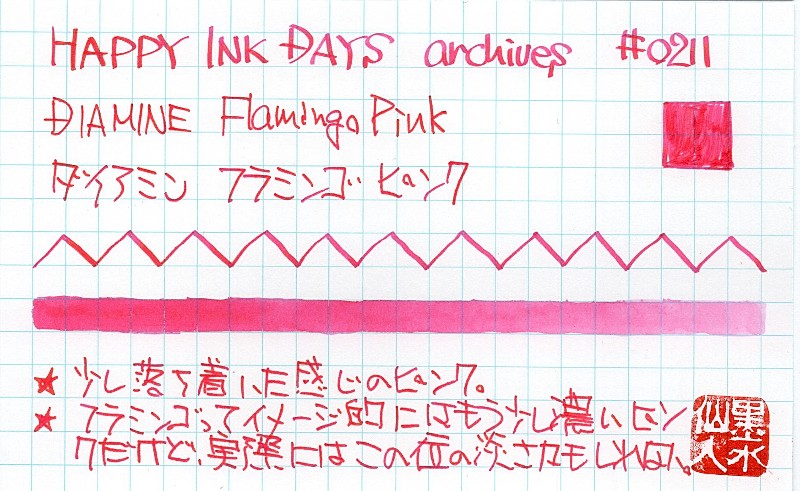 HAPPY INK DAYS archives #0211
DIAMINE Flamingo Pink
ダイアミン フラミンゴピンク
★ 少し落ち着いた感じのピンク。
★ フラミンゴってイメージ的にはもう少し濃いピン
クだけど、実際にはこの位の淡さかもしれない。
黒水
仙人